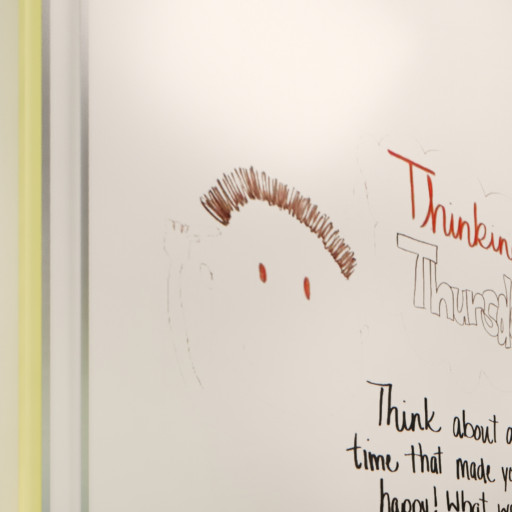 Thinkin
Thursd
Think about a
time that made yo
happy! What w